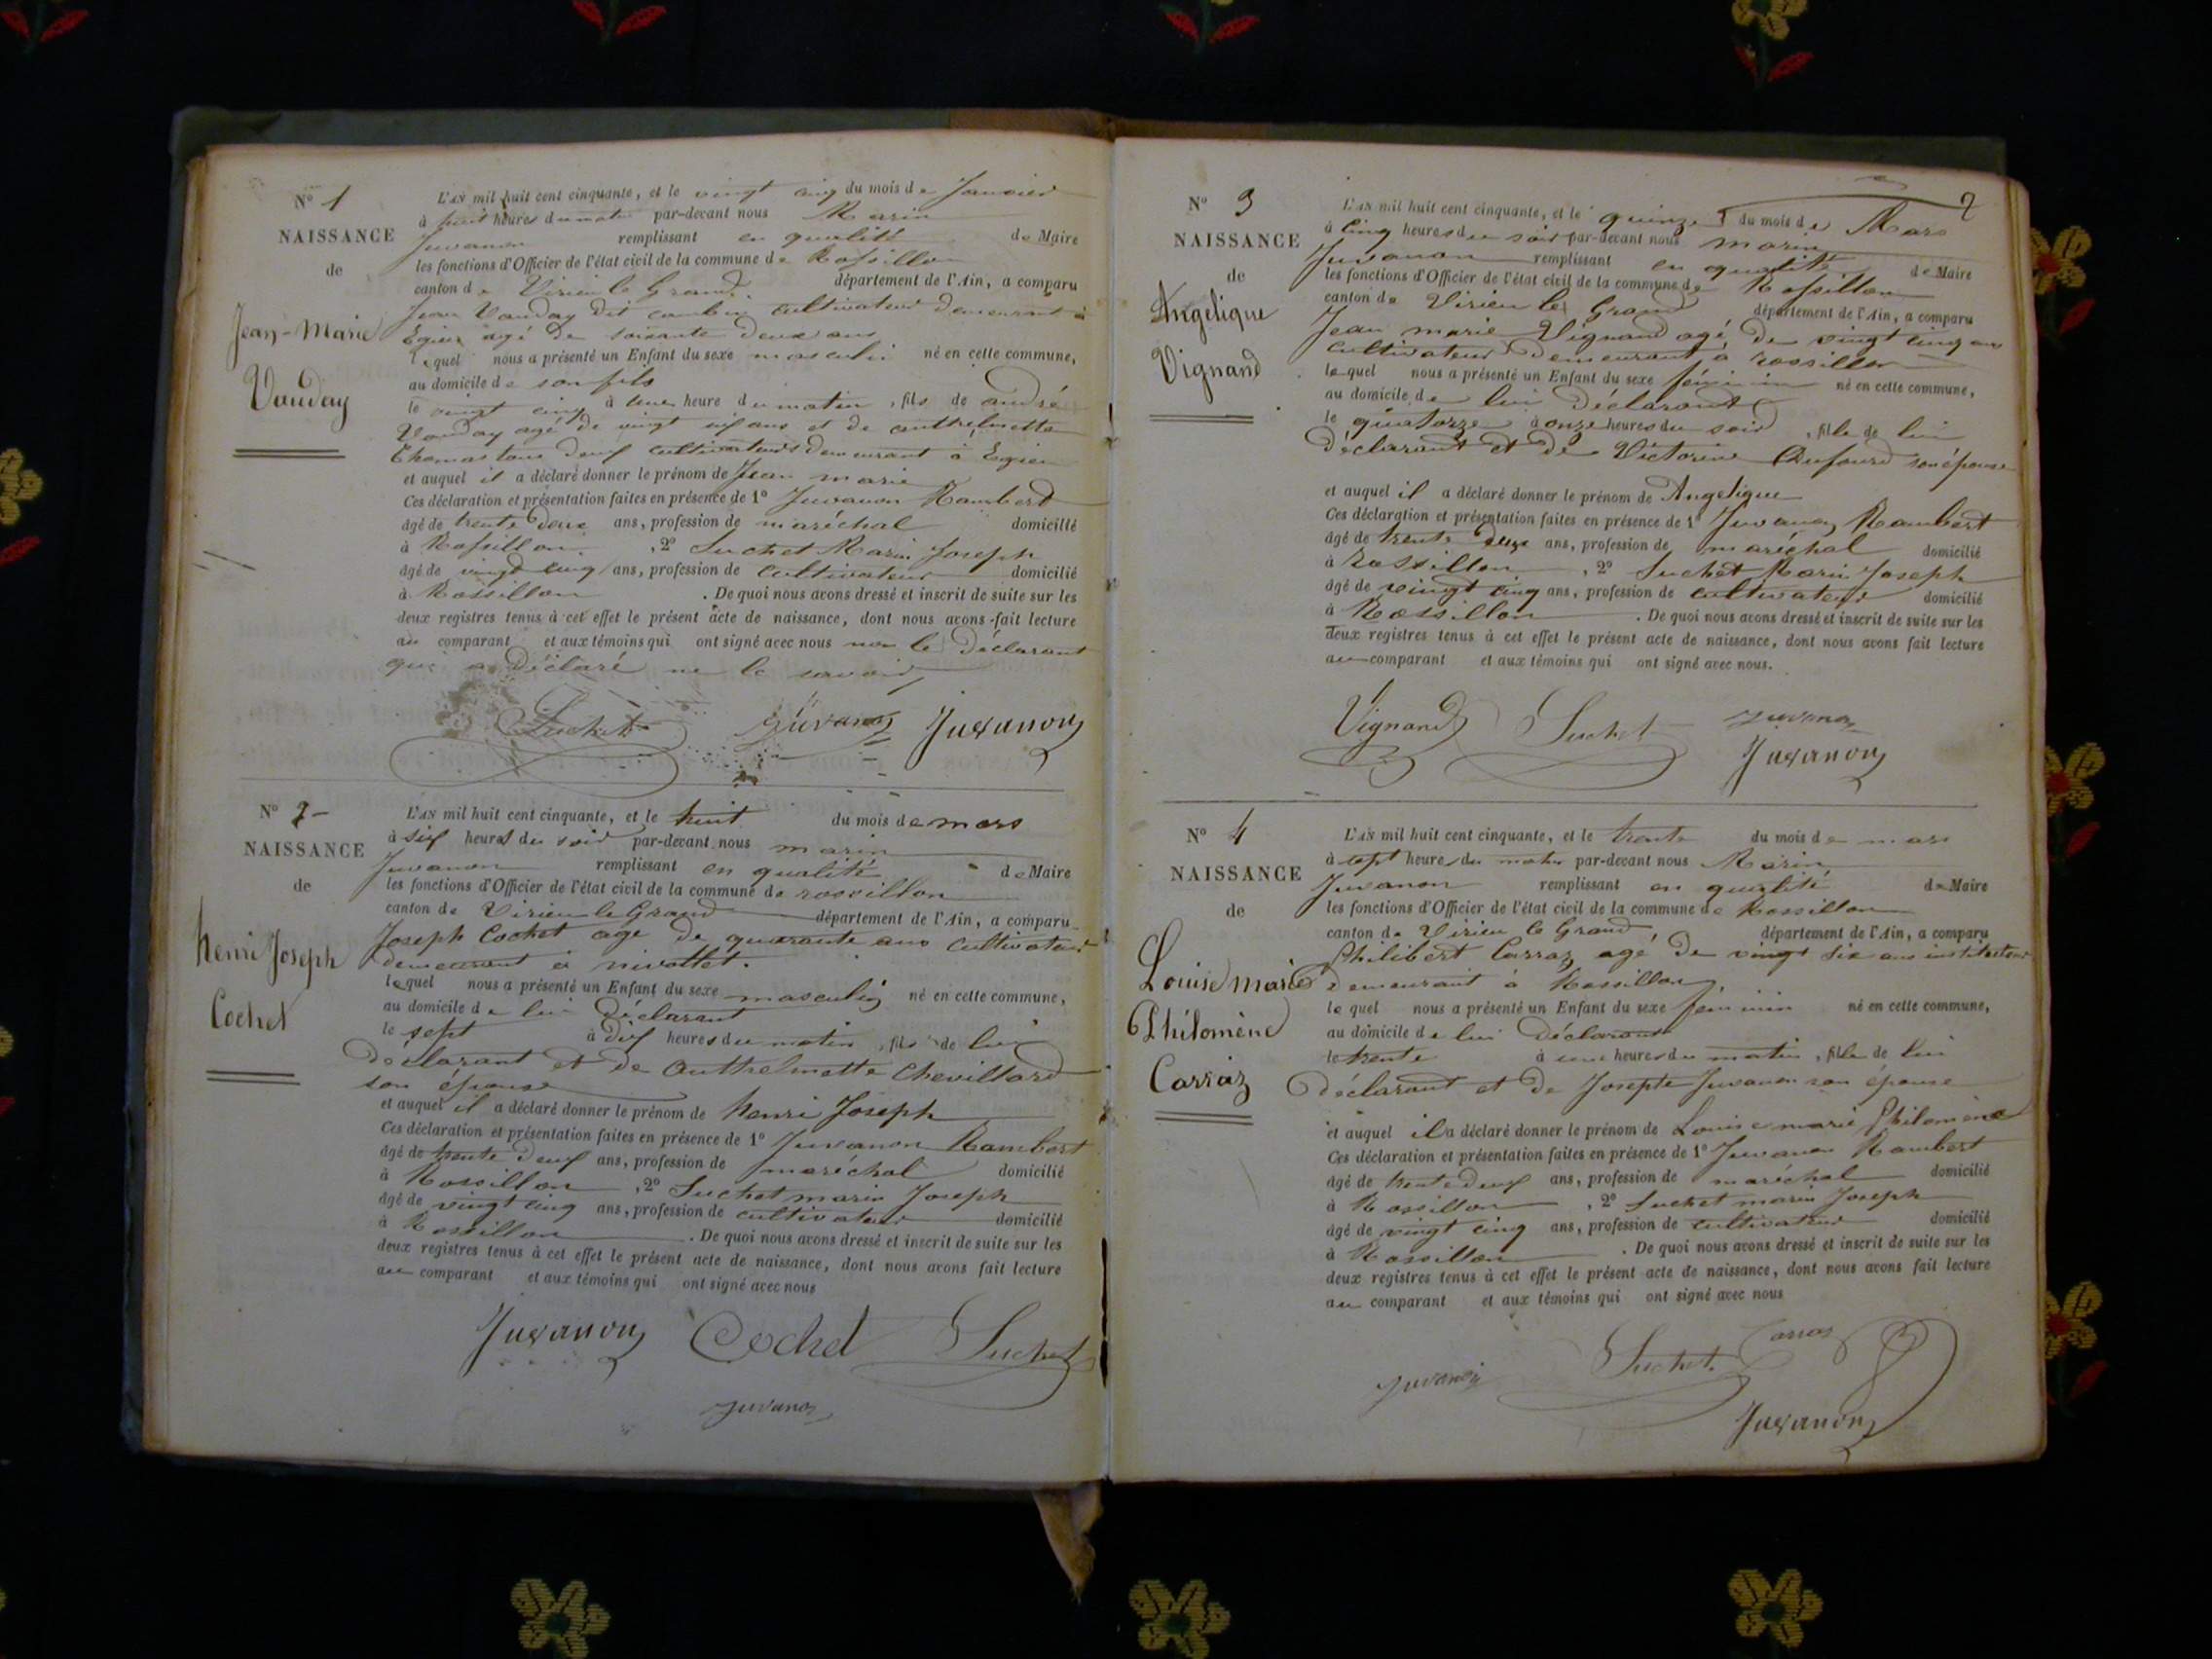 N° 1
NAISSANCE
de
Jean-Marie
Vauday
L'AN mil huit cent cinquante, et le vingt cinq du mois de Janvier
à huit heures du matin par-devant nous Marin
Juvanon remplissant en qualité de Maire
les fonctions d'Officier de l'état civil de la commune de Rossillon
canton de Virieu le Grand. département de l'Ain, a comparu
Jean Vauday dit cultivateur demeurant à
Egieu agé de soixante deux ans
lequel nous a présenté un Enfant du sexe masculin né en cette commune,
au domicile de son fils
le vingt cinq à une heure du matin, fils de andré
Vauday agé de vingt ans et de anthelmette
tous deux cultivateurs demeurant à Egieu
et auquel il a déclaré donner le prénom de Jean marie
Ces déclaration et présentation faites en présence de 1° Juvanon Rambert
âgé de trente deux ans, profession de maréchal domicilié
à Rossillon, 2° Suchet Marin Joseph
âgé de vingt cinq ans, profession de cultivateur domicilié
à Rossillon. De quoi nous avons dressé et inscrit de suite sur les
deux registres tenus à cet effet le présent acte de naissance, dont nous avons fait lecture
au comparant et aux témoins qui ont signé avec nous non le Déclarant
qui a Déclaré ne le savoir
Suchet Juvanon Juvanon
N° 2
NAISSANCE
de
henri Joseph
Cochet
L'AN mil huit cent cinquante, et le huit du mois de mars
à six heures du soir par-devant nous marin
Juvanon remplissant en qualité de Maire
les fonctions d'Officier de l'état civil de la commune de rossillon
canton de Virieu le Grand département de l'Ain, a comparu
Joseph Cochet agé de quarante ans cultivateur
demeurant à nivollet.
lequel nous a présenté un Enfant du sexe masculin né en cette commune,
au domicile de lui déclarant
le sept à dix heures du matin, fils de lui
déclarant et de Anthelmette Chevillard
son épouse
et auquel il a déclaré donner le prénom de henri Joseph
Ces déclaration et présentation faites en présence de 1° Juvanon Rambert
âgé de trente deux ans, profession de maréchal domicilié
à Rossillon, 2° Suchet marin Joseph
âgé de vingt cinq ans, profession de cultivateur domicilié
à Rossillon. De quoi nous avons dressé et inscrit de suite sur les
deux registres tenus à cet effet le présent acte de naissance, dont nous avons fait lecture
au comparant et aux témoins qui ont signé avec nous
Juvanon Cochet Suchet
Juvanon
2
N° 3
NAISSANCE
de
Angelique
Vignand
L'AN mil huit cent cinquante, et le quinze du mois de Mars
à cinq heures du soir par-devant nous marin
Juvanon remplissant en qualité de Maire
les fonctions d'Officier de l'état civil de la commune de Rossillon
canton de Virieu le Grand département de l'Ain, a comparu
Jean marie Vignand agé de vingt cinq ans
cultivateur Demeurant à rossillon
lequel nous a présenté un Enfant du sexe féminin né en cette commune,
au domicile de lui Déclarant
le quatorze à onze heures du soir, fille de lui
déclarant et de Victorine Dufour son épouse
et auquel il a déclaré donner le prénom de Angelique
Ces déclaration et présentation faites en présence de 1° Juvanon Rambert
âgé de trente deux ans, profession de maréchal domicilié
à rossillon, 2° Suchet Marin Joseph
âgé de vingt cinq ans, profession de cultivateur domicilié
à Rossillon. De quoi nous avons dressé et inscrit de suite sur les
deux registres tenus à cet effet le présent acte de naissance, dont nous avons fait lecture
au comparant et aux témoins qui ont signé avec nous.
Vignand Suchet Juvanon
Juvanon
N° 4
NAISSANCE
de
Louise marie
Philomène
Carraz
L'AN mil huit cent cinquante, et le trente du mois de mars
à sept heures du matin par-devant nous Marin
Juvanon remplissant en qualité de Maire
les fonctions d'Officier de l'état civil de la commune de Rossillon
canton de Virieu le Grand, département de l'Ain, a comparu
Philibert Carraz agé de vingt six ans instituteur
Demeurant à Rossillon,
lequel nous a présenté un Enfant du sexe féminin né en cette commune,
au domicile de lui Déclarant
le trente à une heures du matin, fille de lui
déclarant et de Josepte Juvanon son épouse
et auquel il a déclaré donner le prénom de Louise marie Philomène
Ces déclaration et présentation faites en présence de 1° Juvanon Rambert
âgé de trente deux ans, profession de maréchal domicilié
à Rossillon, 2° Suchet marin Joseph
âgé de vingt cinq ans, profession de cultivateur domicilié
à Rossillon. De quoi nous avons dressé et inscrit de suite sur les
deux registres tenus à cet effet le présent acte de naissance, dont nous avons fait lecture
au comparant et aux témoins qui ont signé avec nous
Juvanon Suchet Carraz
Juvanon